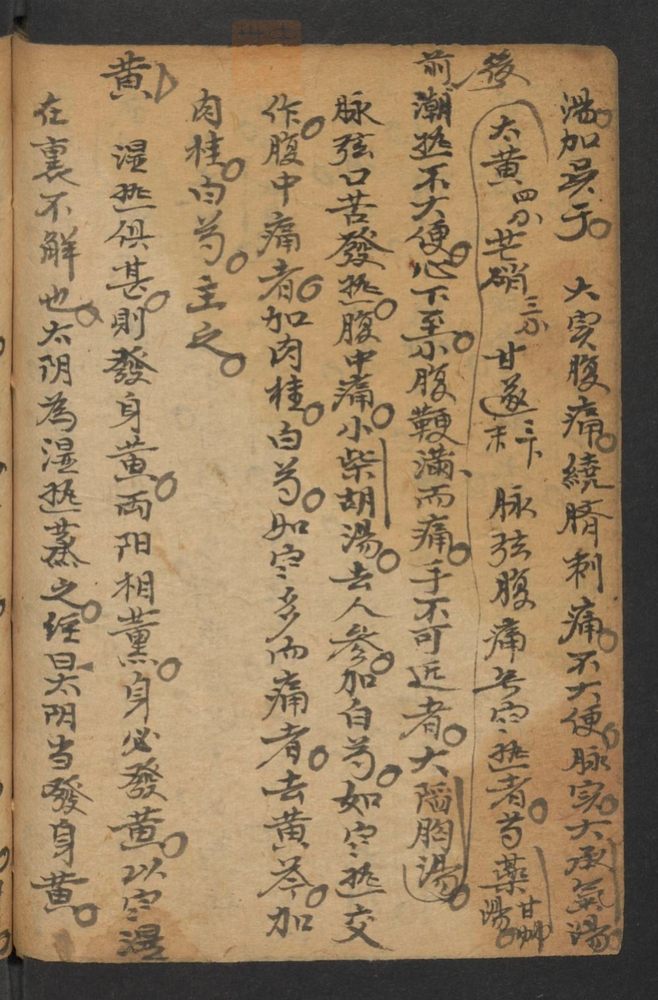 湯加吳于 大实腹痛繞臍刺痛不大便脉实大承氣湯
後 大黄四分芒硝三分甘遂末三卜 脉弦腹痛無寒熱者芍藥甘艸湯
前潮熱不大便心下至小腹鞕滿而痛手不可近者大陷胸湯
脉弦口苦發熱腹中痛小柴胡湯去人參加白芍如寒熱交
作腹中痛者加肉桂白芍如寒多而痛者去黄芩加
肉桂白芍主之
黄 湿熱俱甚則發身黄両阳相薰身必發黄以寒湿
在裏不解也太阴為湿熱蒸之経曰太阴当發身黄